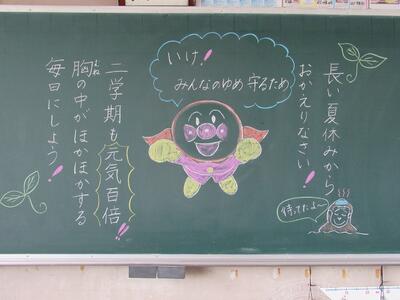 長い夏休みから
おかえりなさい!
待ってたよ〜
いけ!
みんなのゆめ守るため
二学期も元気百倍!!
胸の中がほかほかする
毎日にしよう!